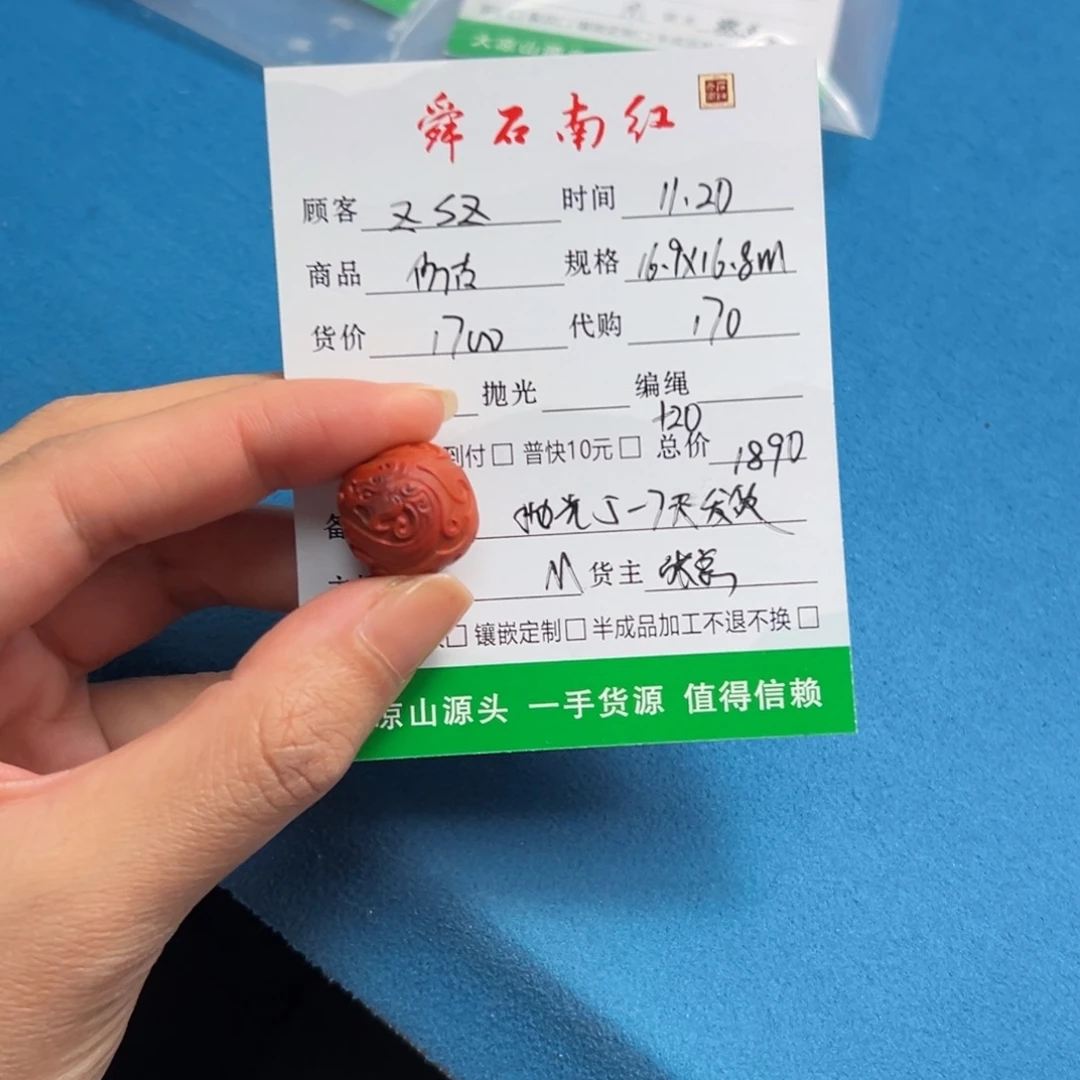 大凉山源
舜石南红
顾客 Z S Z 时间 11.20
商品 仿古 规格 16.9X16.8m
货价 1700 代购 170
抛光 编绳
+20
到付□ 普快10元□ 总价 1890
抛光 5-7天发货
M 货主
□ 镶嵌定制□ 半成品加工不退不换□
凉山源头 一手货源 值得信赖